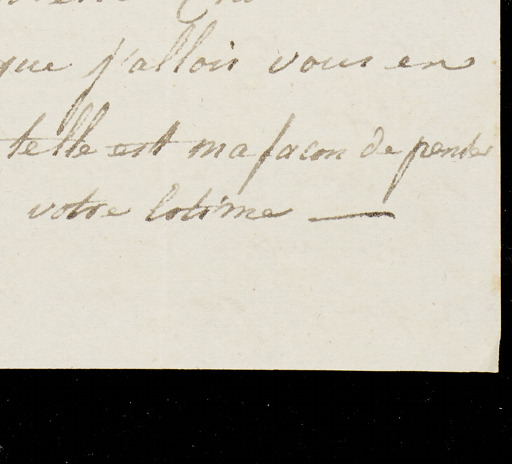 que j'allois vous en
telle est ma facon de penser
votre Estime —